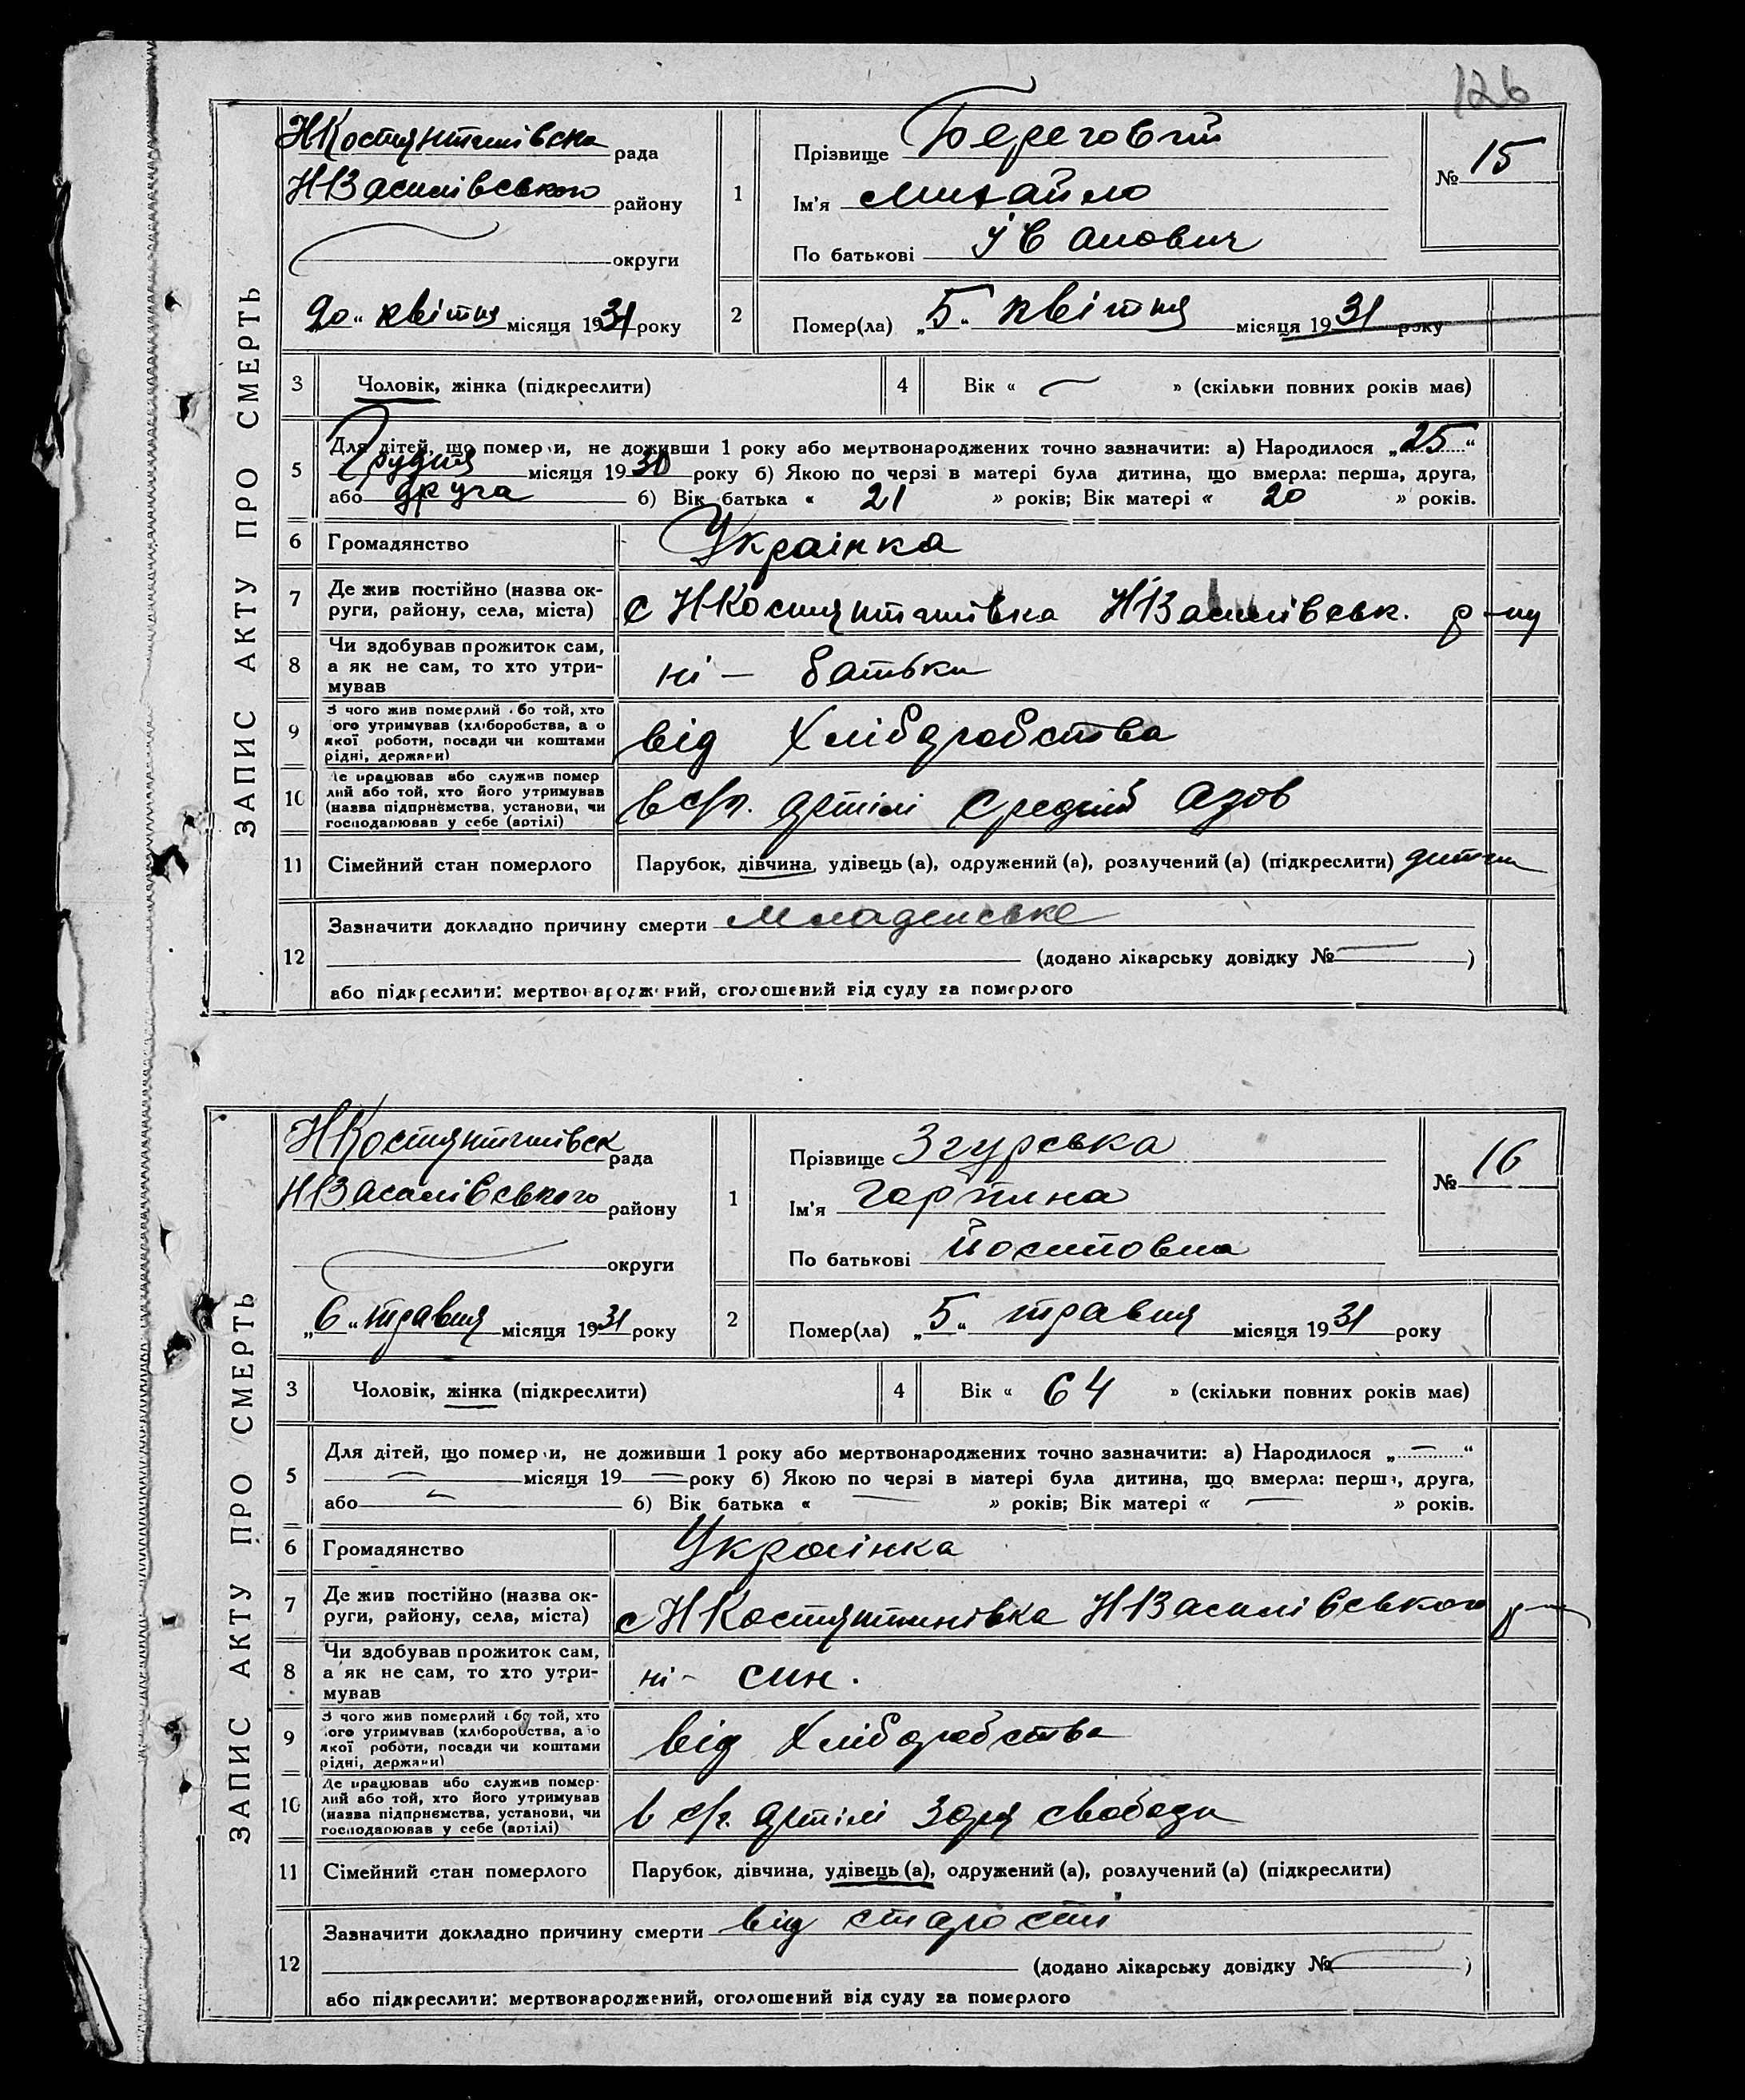 126
ЗАПИС АКТУ ПРО СМЕРТЬ
НКостянтинівська рада
НВасилівського району
округи
20 " квітня місяця 1931 року
1
Прізвище Береговий
Ім'я Михайло
По батькові Іванович
№ 15
2
Помер(ла) „5" квітня місяця 1931 року
3
Чоловік, жінка (підкреслити)
4
Вік « — » (скільки повних років має)
5
Для дітей, що померли, не доживши 1 року або мертвонароджених точно зазначити: а) Народилося „25"
Грудня місяця 1930 року б) Якою по черзі в матері була дитина, що вмерла: перша, друга,
або друга б) Вік батька « 21 » років; Вік матері « 20 » років.
6
Громадянство
Украінка
7
Де жив постійно (назва ок-
руги, району, села, міста)
с НКостянтинівка НВасилівськ. р-ну
8
Чи здобував прожиток сам,
а як не сам, то хто утри-
мував
ні — батьки
9
З чого жив померлий або той, хто
його утримував (хліборобства, а о
якої роботи, посади чи коштами
рідні, держави)
від хліборобства
10
Де працював або служив помер
лий або той, хто його утримував
(назва підприємства, установи, чи
господарював у себе (артілі)
в с/г. артілі Средній Азов
11
Сімейний стан померлого
Парубок, дівчина, удівець (а), одружений (а), розлучений (а) (підкреслити) дитина
12
Зазначити докладно причину смерти Младенське
(додано лікарську довідку № — )
або підкреслити: мертвонароджений, оголошений від суду за померлого
ЗАПИС АКТУ ПРО СМЕРТЬ
НКостянтинівськ рада
НВасилівського району
округи
„6" травня місяця 1931 року
1
Прізвище Згурська
Ім'я Горпина
По батькові Йосиповна
№ 16
2
Помер(ла) „5" травня місяця 1931 року
3
Чоловік, жінка (підкреслити)
4
Вік « 64 » (скільки повних років має)
5
Для дітей, що померли, не доживши 1 року або мертвонароджених точно зазначити: а) Народилося „—"
— місяця 19 — року б) Якою по черзі в матері була дитина, що вмерла: перша, друга,
або — б) Вік батька « — » років; Вік матері « — » років.
6
Громадянство
Українка
7
Де жив постійно (назва ок-
руги, району, села, міста)
с НКостянтинівка НВасилівського р—
8
Чи здобував прожиток сам,
а як не сам, то хто утри-
мував
ні - син.
9
З чого жив померлий або той, хто
його утримував (хліборобства, або
якої роботи, посади чи коштами
рідні, держави)
від хліборобства
10
Де працював або служив помер-
лий або той, хто його утримував
(назва підприємства, установи, чи
господарював у себе (артілі)
в с/г. артілі Зоря свободи
11
Сімейний стан померлого
Парубок, дівчина, удівець (а), одружений (а), розлучений (а) (підкреслити)
12
Зазначити докладно причину смерти від старости
(додано лікарську довідку № — )
або підкреслити: мертвонароджений, оголошений від суду за померлого